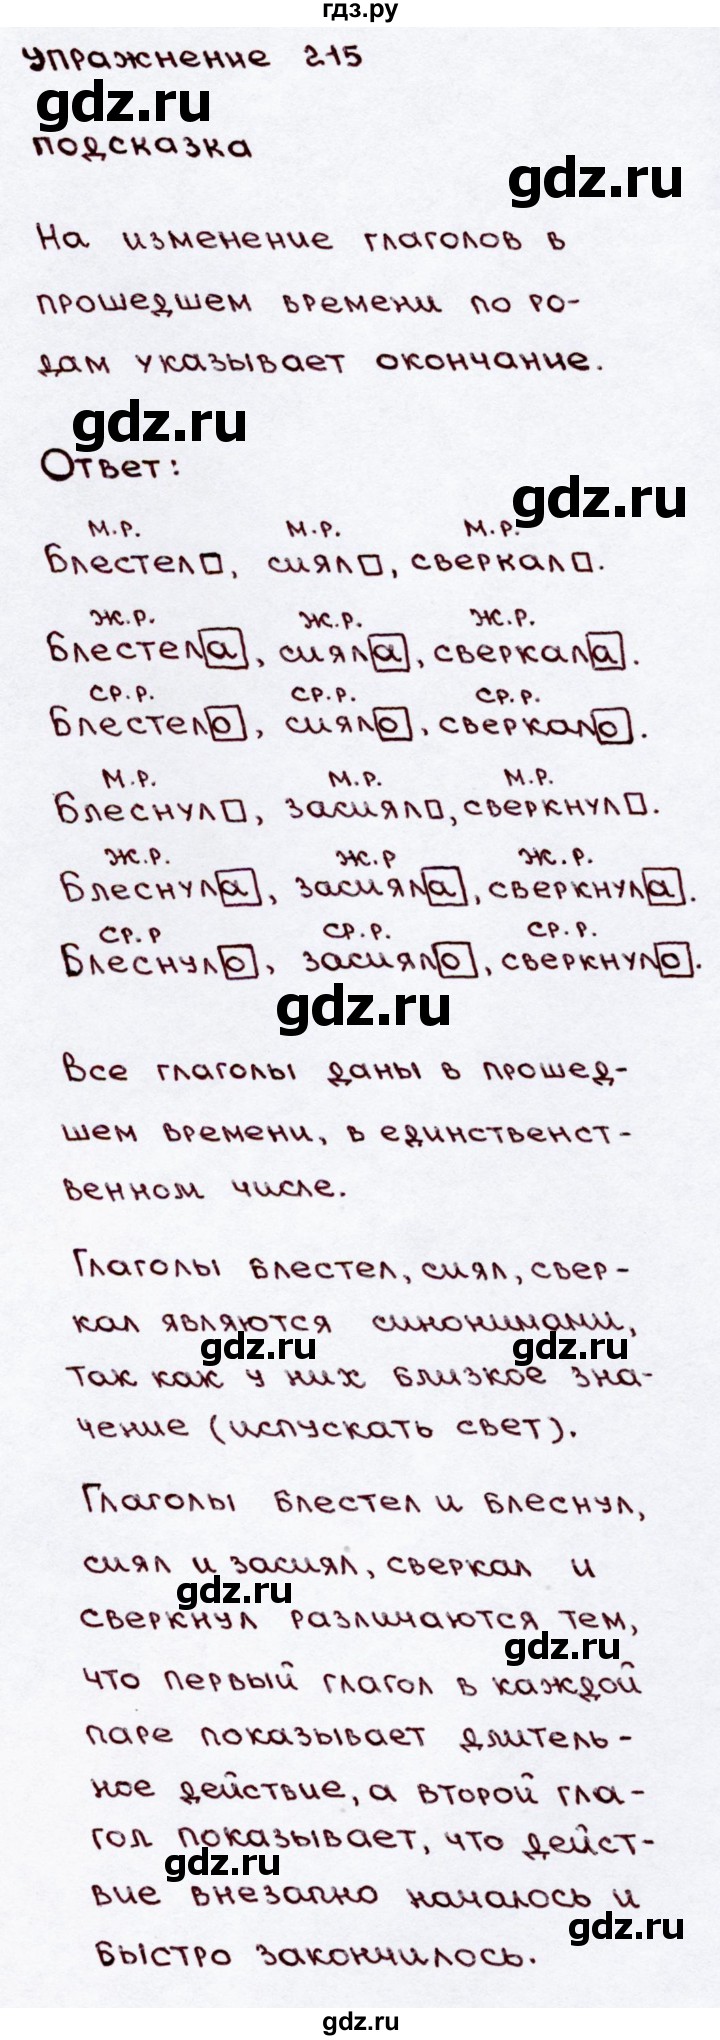 гдз.ру
упражнение 215
gdz.ru
подсказка
gdz.ru
На изменение глаголов в
прошедшем времени по ро-
дам указывает окончание.
gdz.ru
Ответ:
gdz.ru
м.р. м.р. м.р.
Блестел□, сиял□, сверкал□.
ж.р. ж.р. ж.р.
Блестела, сияла, сверкала.
ср.р. ср.р. ср.р.
Блестело, сияло, сверкало.
м.р. м.р. м.р.
Блеснул□, засиял□, сверкнул□.
ж.р. ж.р ж.р.
Блеснула, засияла, сверкнула.
ср.р ср.р. ср.р.
Блеснуло, засияло, сверкнуло.
gdz.ru
Все глаголы даны в прошед-
шем времени, в единственст-
венном числе.
Глаголы блестел, сиял, свер-
кал являются синонимами,
gdz.ru gdz.ru
так как у них близкое зна-
чение (испускать свет).
Глаголы блестел и блеснул,
сиял и засиял, сверкал и
gdz.ru
сверкнул различаются тем,
gdz.ru
что первый глагол в каждой
паре показывает длитель-
ное действие, а второй гла-
гол показывает, что дейст-
gdz.ru
вие внезапно началось и
gdz.ru
быстро закончилось.
gdz.ru